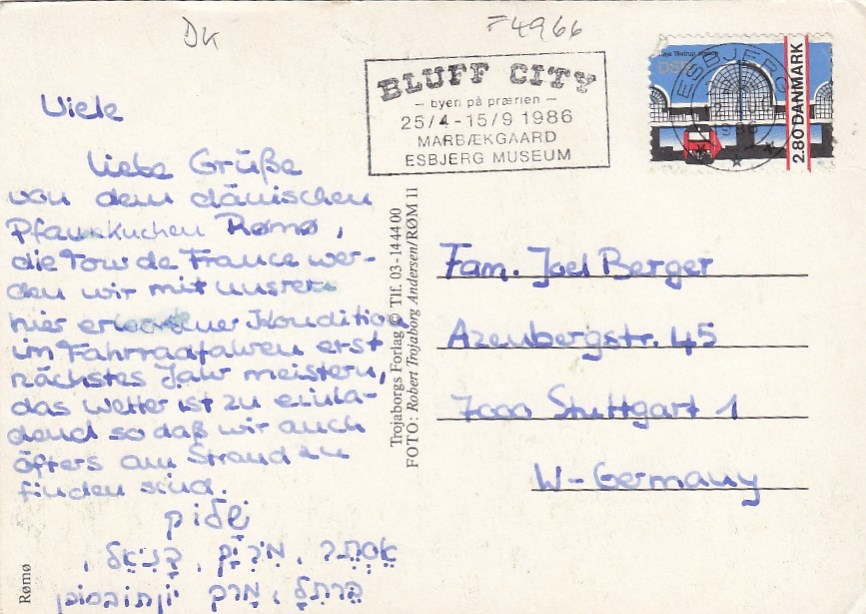 DK
F4966
BLUFF CITY
– byen på prærien –
25/4-15/9 1986
MARBÆKGAARD
ESBJERG MUSEUM
ESBJERG
1986
DSB
2.80 DANMARK
Viele
liebe Grüße
von dem dänischen
Pfannkuchen Rømø,
die Tour de France wer-
den wir mit unsrer
hier erworbener Kondition
im Fahrradfahren erst
nächstes Jahr meistern,
das Wetter ist zu einla-
dend so daß wir auch
öfters am Strand zu
finden sind.
שלום
אֶסְתֵּר, מִרְיָם, דָּנִיאֵל,
Trojaborgs Forlag © Tlf. 03-14 44 00
FOTO: Robert Trojaborg Andersen/RØM 11
Fam. Joel Berger
Azenbergstr. 45
7000 Stuttgart 1
W-Germany
Rømø